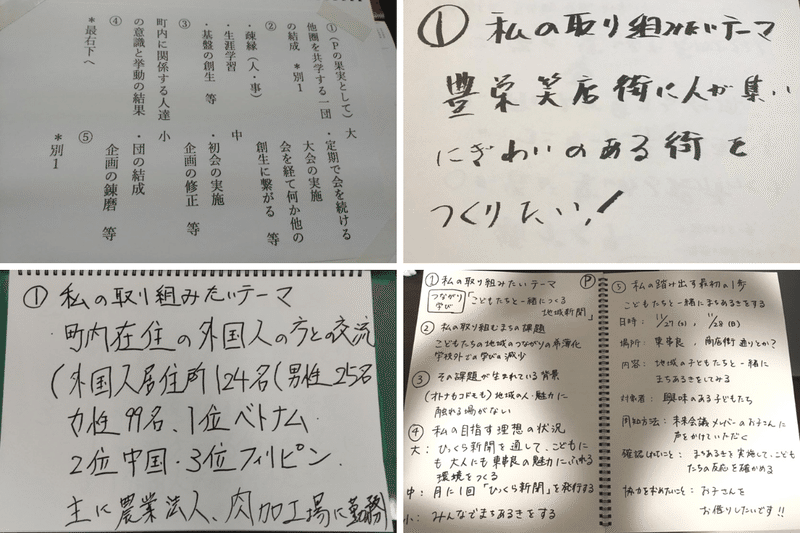 ①（Ｐの果実として）
他圏を共学する一団
の結成　＊別１
②
・疎縁（人・事）
・生涯学習
・基盤の創生　等
③
町内に関係する人達
の意識と挙動の結果
④
＊最右下へ
大
・定期で会を続ける
大会の実施
会を経て何か他の
創生に繋がる　等
中
・初会の実施
企画の修正　等
小
・団の結成
企画の錬磨　等
⑤
＊別１
① 私の取り組みたいテーマ
豊栄笑店街に人が集い
にぎわいのある街を
つくりたい！
① 私の取り組みたいテーマ
町内在住の外国人の方との交流
(外国人居住所124名(男性25名
女性99名、1位ベトナム
2位中国・3位フィリピン
主に農業法人、肉加工場に勤務
① 私の取り組みたいテーマ Ⓟ
つながり
学び
「こどもたちと一緒につくる
地域新聞」
② 私の取り組むまちの課題
こどもたちの地域のつながりの希薄化
学校外での学びの減少
③ その課題が生まれている背景
(オトナもコドモも)地域の人・魅力に
触れる場がない
④ 私の目指す理想の状況
大: ひっくら新聞を通して、こどもに
も大人にも東帯良の魅力にふれる
環境をつくる
中: 月に1回「ひっくら新聞」を発行する
小: みんなでまちあるきをする
⑤ 私の踏み出す最初の1歩
こどもたちと一緒にまちあるきをする
日時: 11/27(土), 11/28(日)
場所: 東帯良、商店街通りとか?
内容: 地域の子どもたちと一緒に
まちあるきをしてみる
対象者: 興味のある子どもたち
周知方法: 未来会議メンバーのお子さんに
声をかけていただく
確認したいこと: まちあるきを実施して、こども
たちの反応を確かめる
協力を求めたいこと: お子さんを
お借りしたいです!!